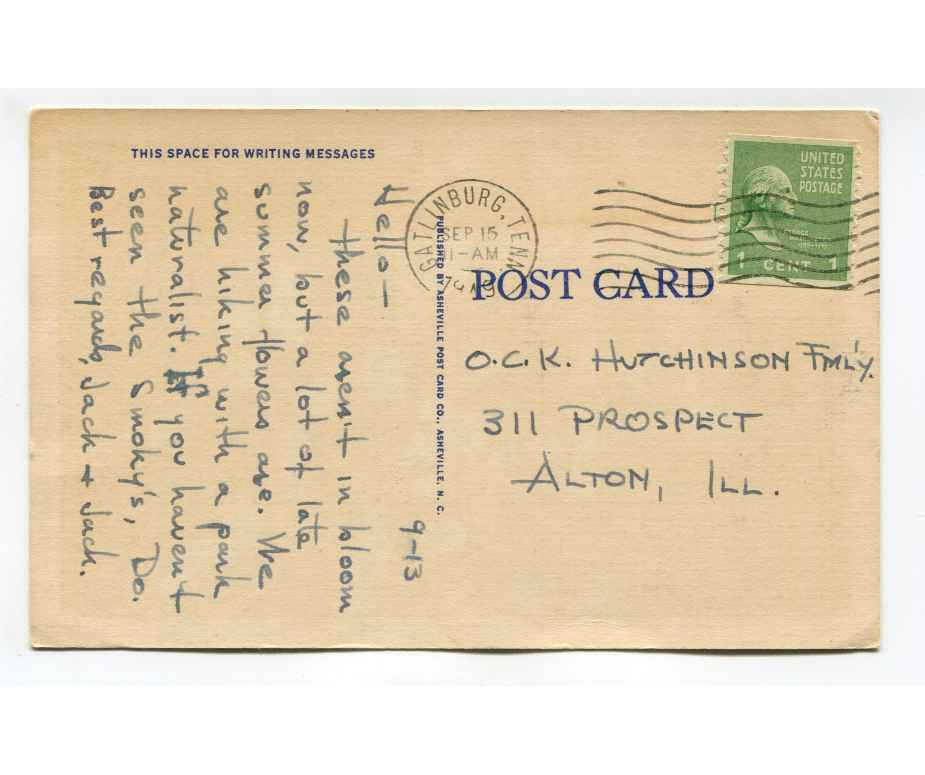 THIS SPACE FOR WRITING MESSAGES
9-13
Hello—
these aren't in bloom
now, but a lot of late
summer flowers are. We
are hiking with a park
naturalist. If you haven't
seen the Smoky's, Do.
Best regards, Jack + Jack.
PUBLISHED BY ASHEVILLE POST CARD CO., ASHEVILLE, N. C.
GATLINBURG, TENN
SEP 15
1-AM
UNITED
STATES
POSTAGE
1 CENT 1
POST CARD
O.C.K. HUTCHINSON FM'LY.
311 PROSPECT
ALTON, ILL.